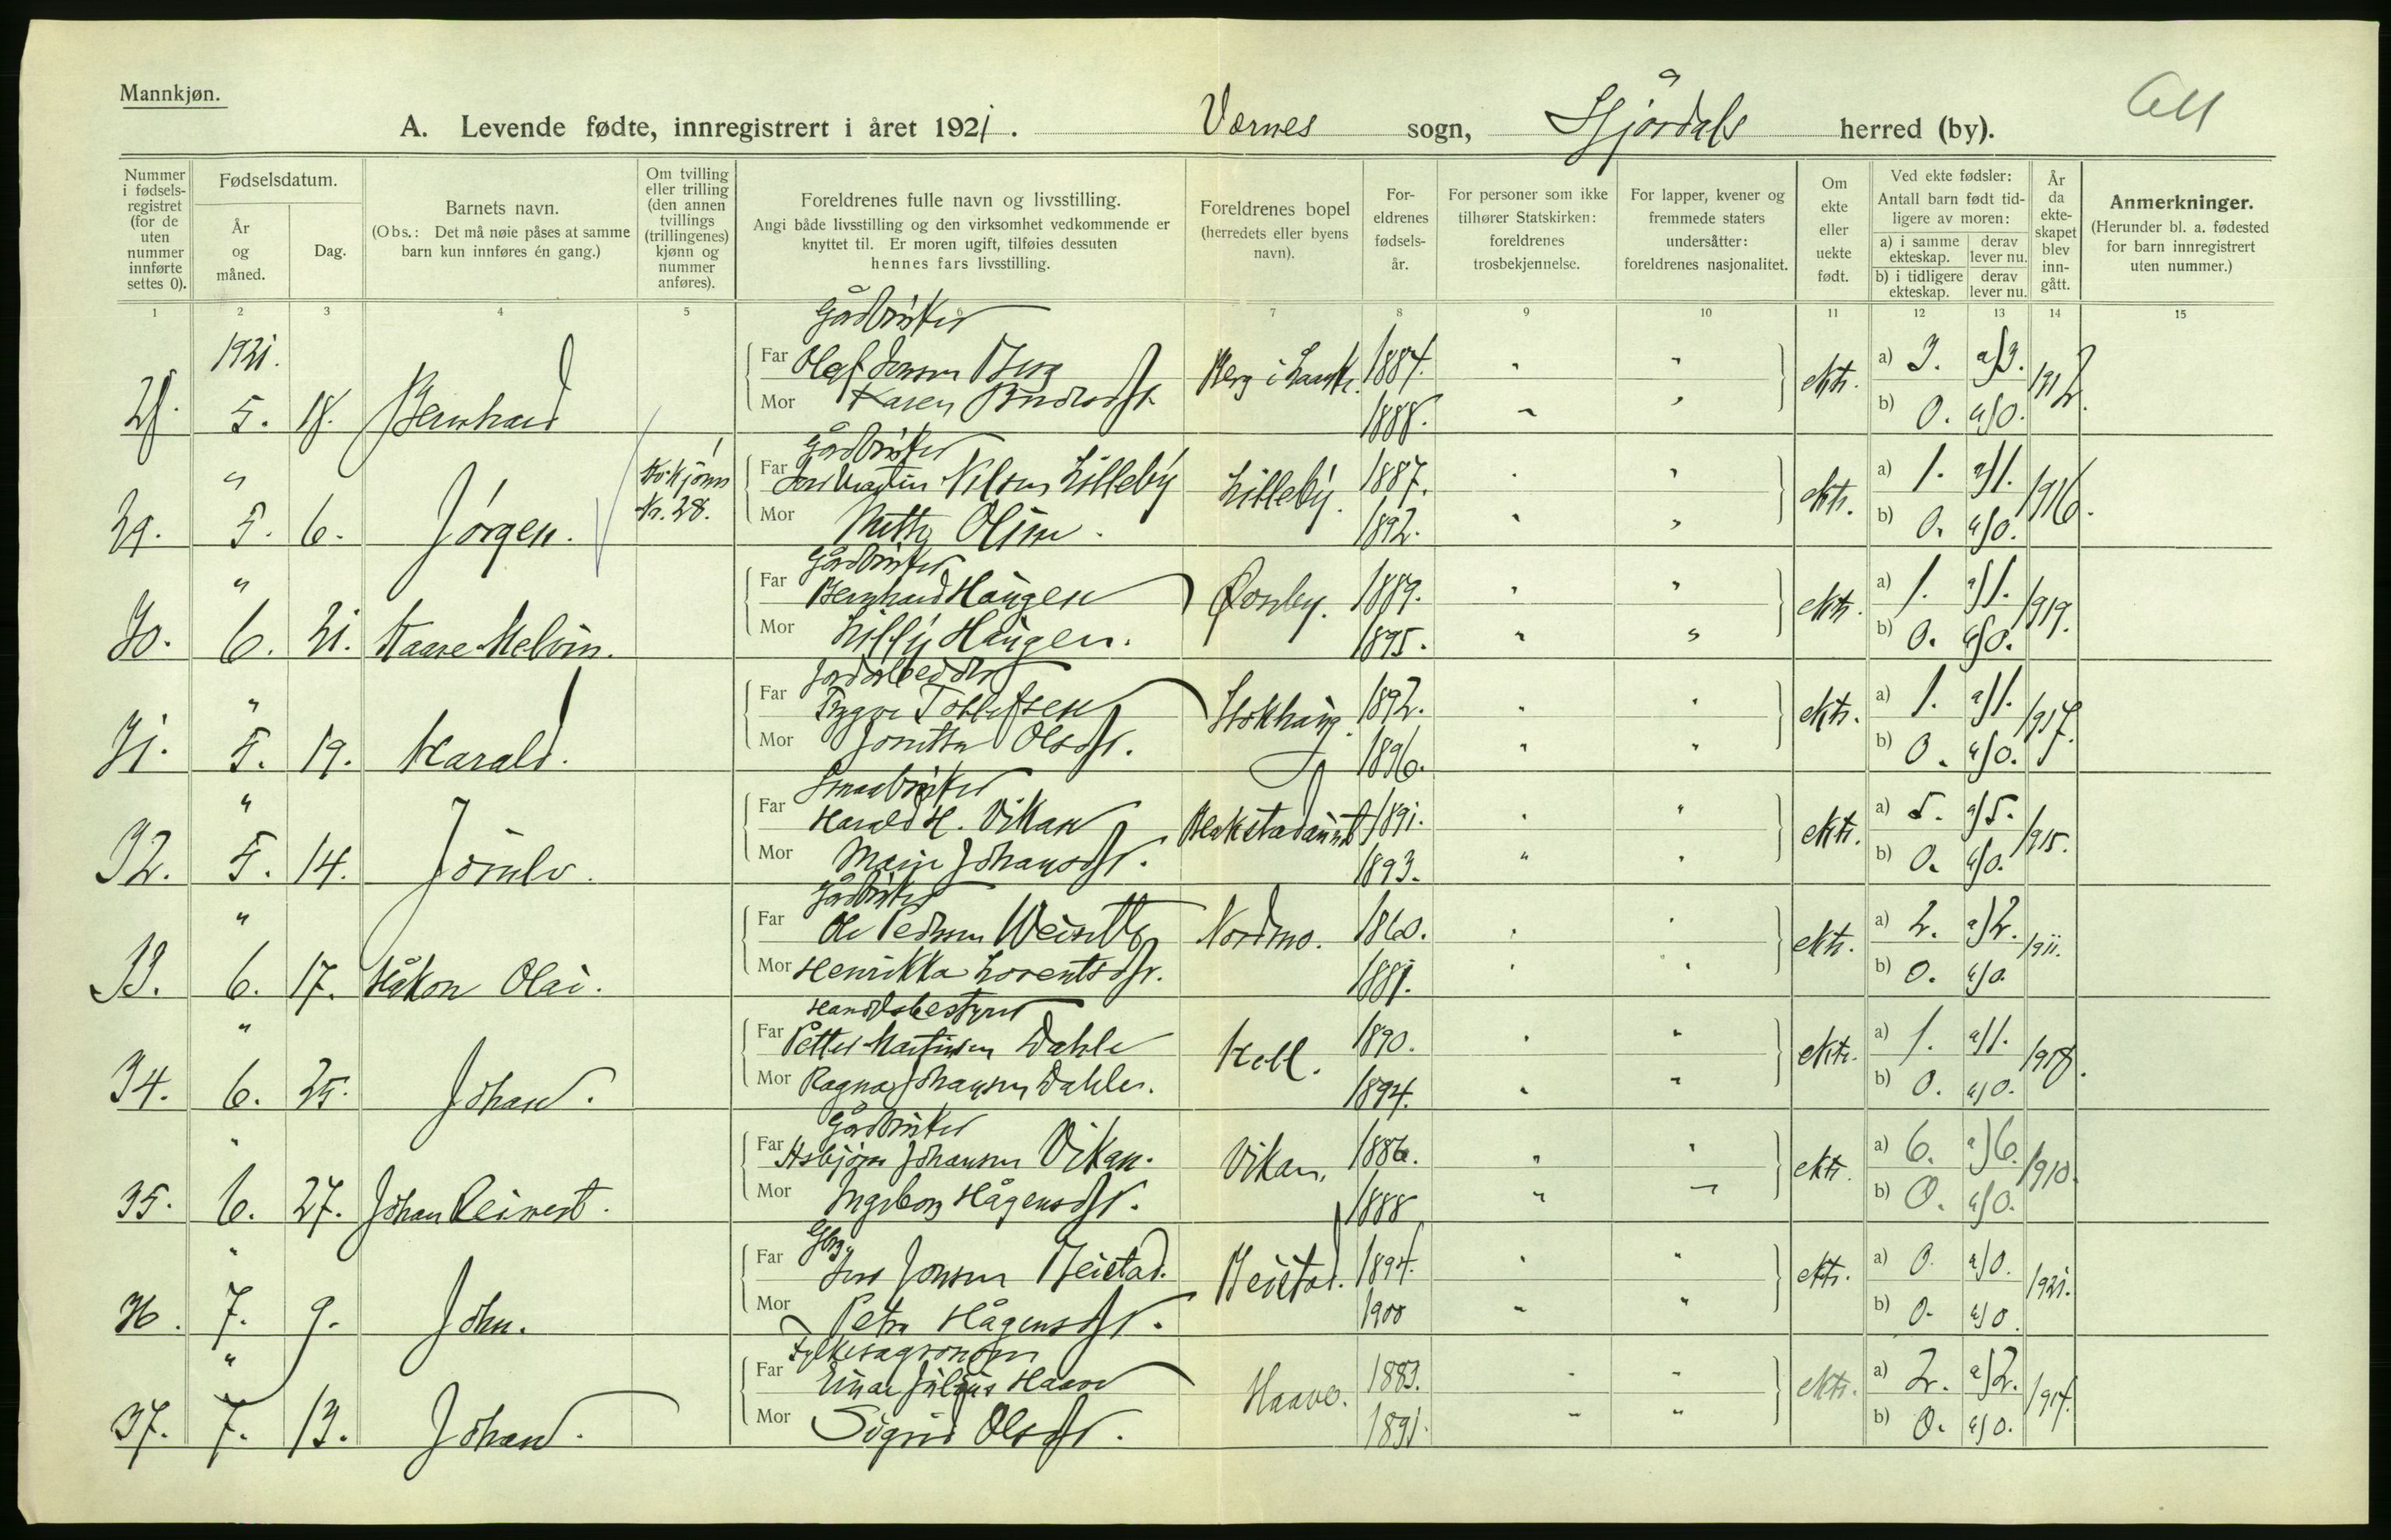 Mannkjøn.
A. Levende fødte, innregistrert i året 1921. Værnes sogn, Stjørdals herred (by).
Nummer i fødsels-registret (for de uten nummer innførte settes 0).
Fødselsdatum.
År og måned.
Dag.
Barnets navn.
(Obs.: Det må nøie påses at samme barn kun innføres én gang.)
Om tvilling eller trilling (den annen tvillings (trillingenes) kjønn og nummer anføres).
Foreldrenes fulle navn og livsstilling.
Angi både livsstilling og den virksomhet vedkommende er knyttet til. Er moren ugift, tilføies dessuten hennes fars livsstilling.
Foreldrenes bopel (herredets eller byens navn).
For-eldrenes fødsels-år.
For personer som ikke tilhører Statskirken: foreldrenes trosbekjennelse.
For lapper, kvener og fremmede staters undersåtter: foreldrenes nasjonalitet.
Om ekte eller uekte født.
Ved ekte fødsler:
Antall barn født tid-ligere av moren:
a) i samme ekteskap. derav lever nu.
b) i tidligere ekteskap. derav lever nu.
År da ekte-skapet blev inn-gått.
Anmerkninger.
(Herunder bl. a. fødested for barn innregistrert uten nummer.)
1 2 3 4 5 6 7 8 9 10 11 12 13 14 15
1921.
Gårdbruker
Far Olaf Jensen Berg 1884. " " a) 3. a)3.
28. 5. 18. Bernhard Mor Karen 1888. " " ekte. b) 0. a)0. 1912.
Gårdbruker
" Kv.kjønn Far Nilsen Lilleby Lilleby. 1887. " " a) 1. a)1.
29. 5. 6. Jørgen. Nr. 28. Mor 1892. " " ekte. b) 0. a)0. 1916.
Gårdbruker
" Far Bernhard Haugen 1889. " " a) 1. a)1.
30. 6. 21. Kaare Melvin. Mor Lilly Haugen. 1895. " " ekte. b) 0. a)0. 1919.
Jordarbeider
" Far Trygve Tollefsen Stokhaug. 1892. " " a) 1. a)1.
31. 5. 19. Harald. Mor Olsdtr. 1896. " " ekte. b) 0. a)0. 1917.
Smaabruker
" Far Harald H. Vikan 1891. " " a) 5. a)5.
32. 5. 14. Mor Johansdtr. 1893. " " ekte. b) 0. a)0. 1915.
Gårdbruker
" Far Ole Pedersen Nordmo. 1860. " " a) 2. a)2.
33. 6. 17. Håkon Olai. Mor Henrikka Lorentsdtr. 1881. " " ekte. b) 0. a)0. 1911.
Handelsbestyrer
" Far Petter Martinsen Dahle Hell. 1890. " " a) 1. a)1.
34. 6. 25. Johan. Mor Ragna Johansen Dahle. 1894. " " ekte. b) 0. a)0. 1918.
Gårdbruker
" Far Asbjørn Johansen Vikan. Vikan. 1886. " " a) 6. a)6.
35. 6. 27. Johan Reinert. Mor Ingeborg Hågensdtr. 1888 " " ekte. b) 0. a)0. 1910.
Gbr.
" Far Jens Jonsen Beistad. Beistad. 1894. " " a) 0. a)0.
36. 7. 9. John. Mor Petra Hågensdtr. 1900 " " ekte. b) 0. a)0. 1921.
Fylkesagronom
" Far Einar Julius Haave Haave. 1883. " " a) 2. a)2.
37. 7. 13. Johan. Mor Sigrid Olsdtr. 1891. " " ekte. b) 0. a)0. 1917.